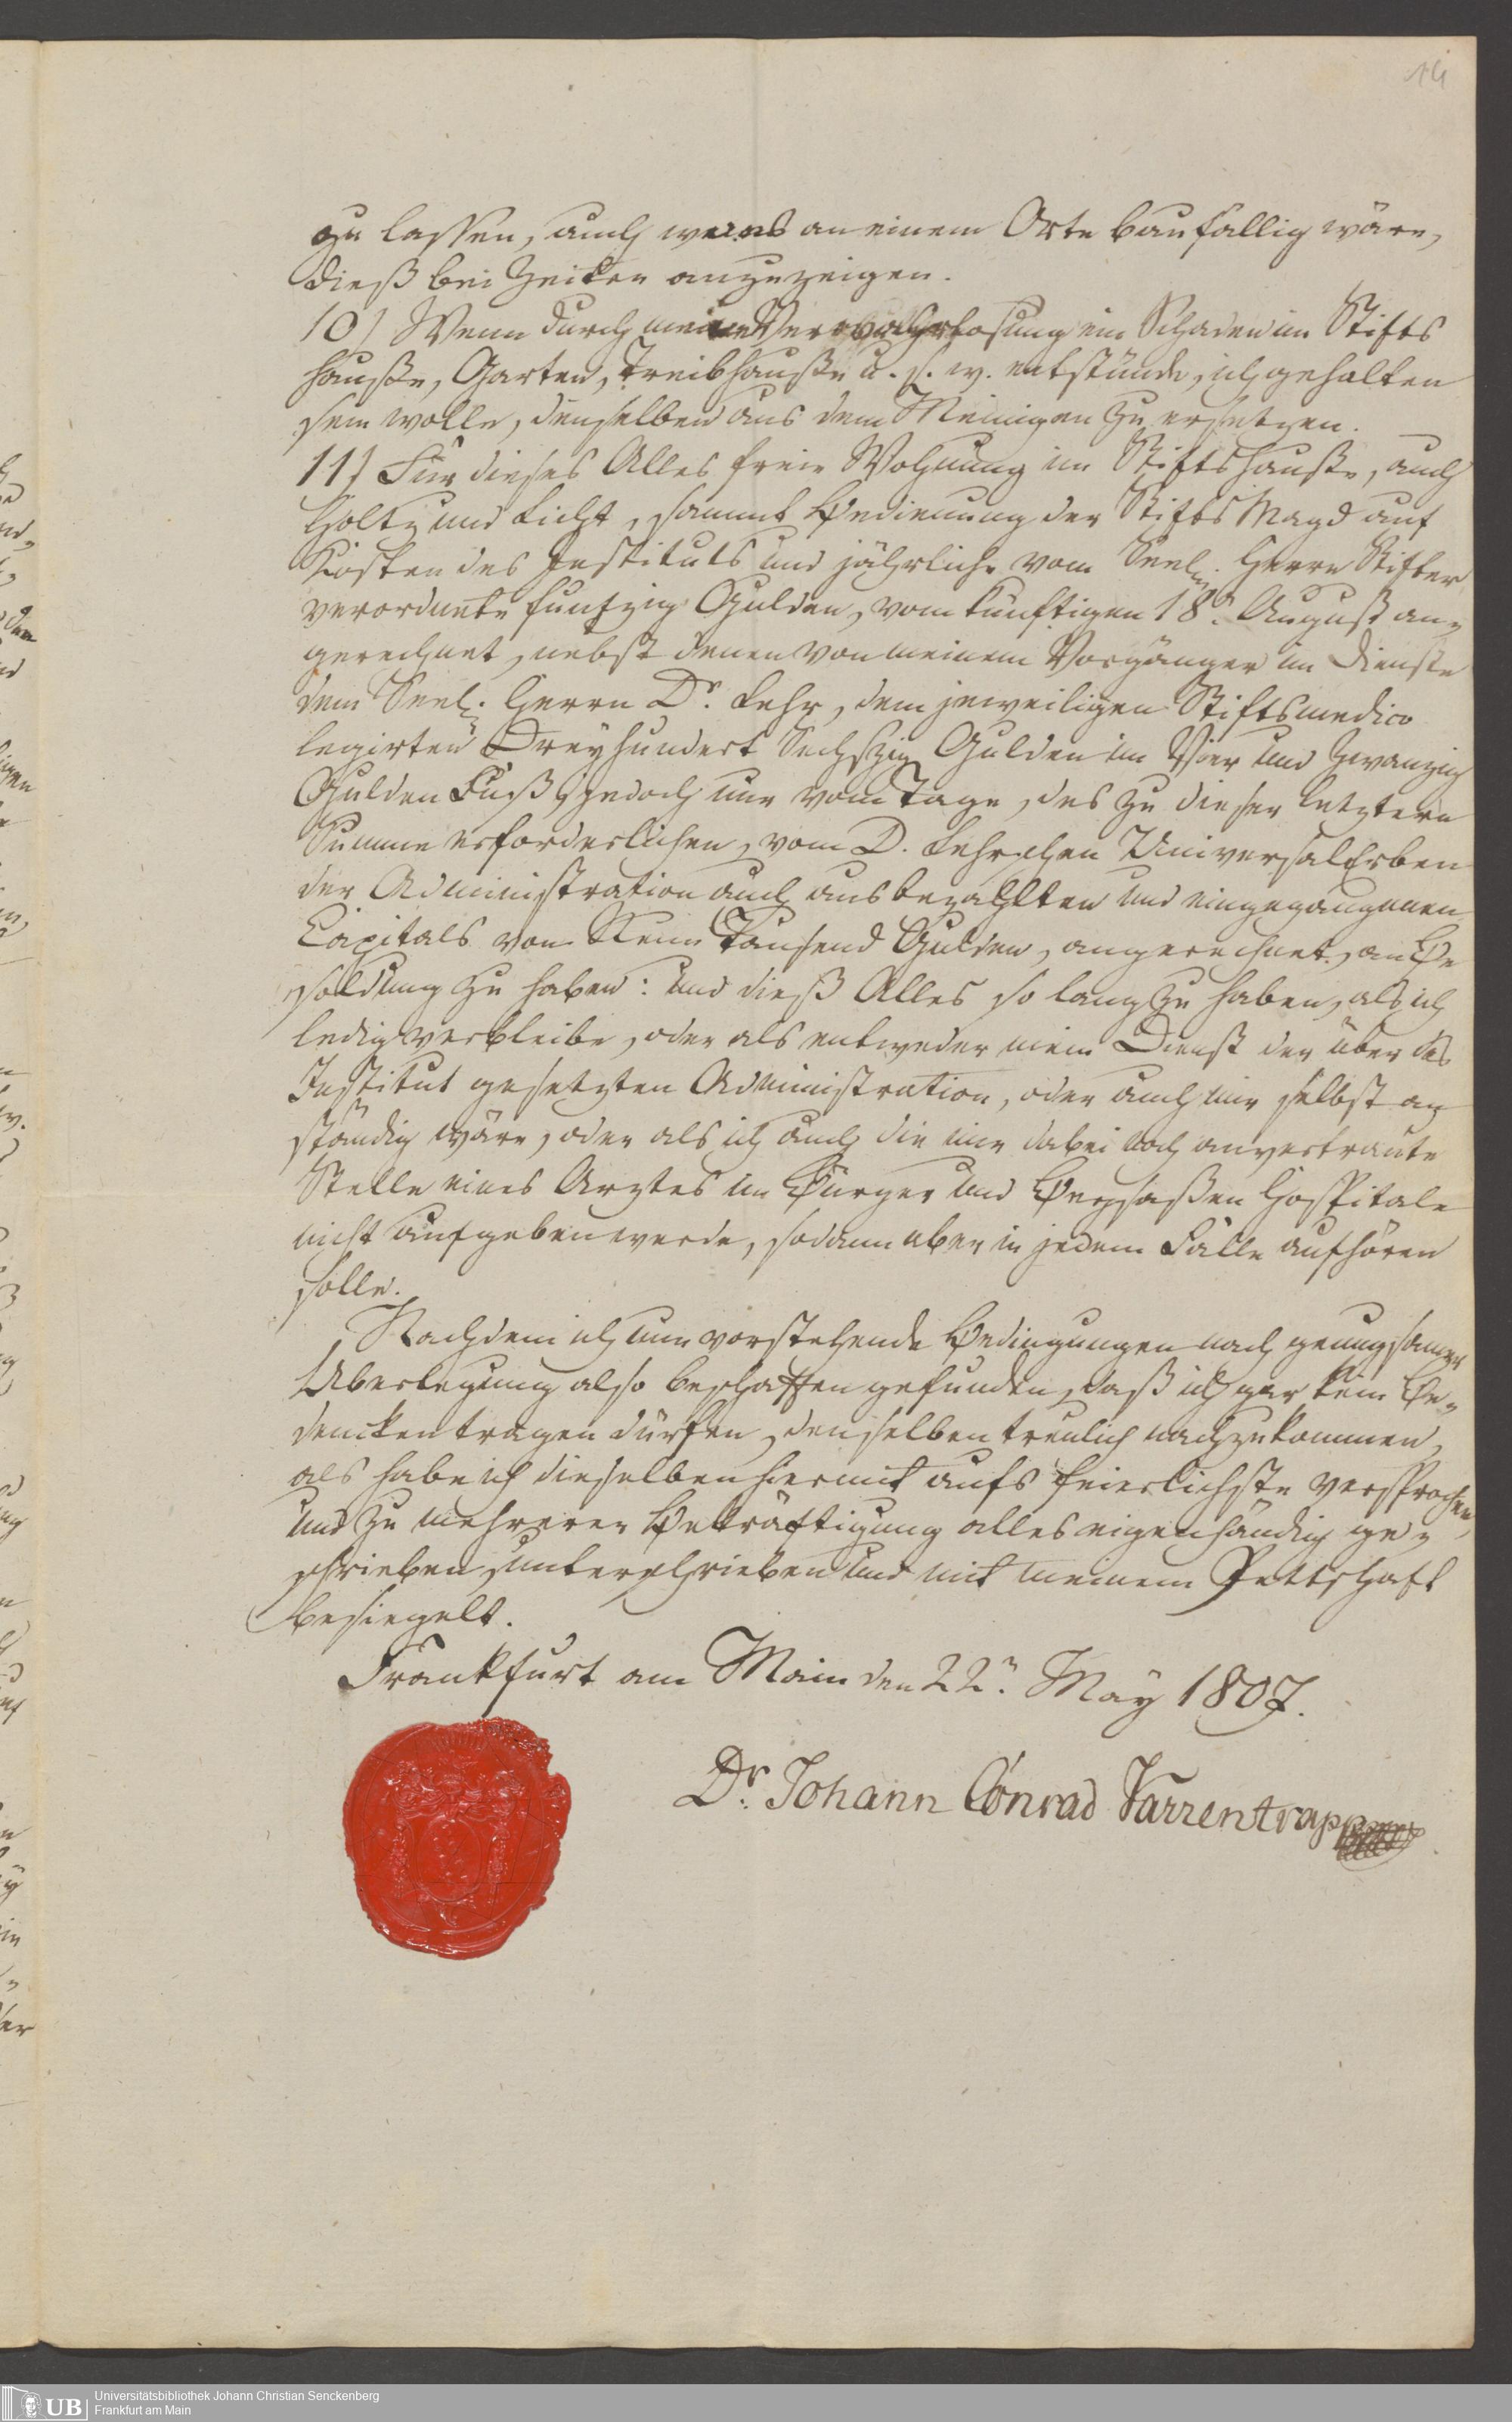 14
zu lassen, auch wenns an einem Orte baufällig wäre,
dieß bei Zeiten anzuzeigen.
10) Wenn durch meine Verwahrlosung ein Schaden im Stifts
hauße, Garten, Treibhauße u. s. w. entstünde, ich gehalten
seyn wolle, denselben aus dem Meinigen zu ersetzen.
11) Für dieses Alles freie Wohnung im Stiftshauße, auch
Holtz und Licht, sammt Bedienung der Stifts Magd auf
Kosten des Instituts und jährliche vom Seel. Herrn Stifter
verordnete funfzig Gulden, vom künftigen 18n. August an-
gerechnet, nebst denen von meinem Vorgänger im Dienste
dem Seel. Herrn Dr. Lehr, dem jeweiligen Stiftsmedico
legirten Dreyhundert Sechszig Gulden im Vier und Zwanzig
Gulden Fuß, jedoch nur vom Tage, des zu dieser letztern
Summe erforderlichen, vom D. Lehrschen UniversalErben
der Administration auch ausbezahlten und eingegangenen
Capitals von Neun Tausend Gulden, angerechnet, an Be
soldung zu haben: und dieß Alles so lang zu haben, als ich
ledig verbleibe, oder als entweder mein Dienst der über das
Institut gesetzten Administration, oder auch mir selbst an
ständig wäre, oder als ich auch die mir dabei noch anvertraute
Stelle eines Arztes im Bürger und Beysaßen Hospitale
nicht aufgeben werde, sodann aber in jedem Falle aufhören
solle.
Nachdem ich nun vorstehende Bedingungen nach genugsamer
Überlegung also beschaffen gefunden, daß ich gar kein Be-
dencken tragen dürfen, denselben treulich nachzukommen,
als habe ich dieselben hiermit aufs feierlichste versprochen,
und zu mehrerer Bekräftigung alles eigenhändig ge-
schrieben, unterschrieben und mit meinem Pettschaft
besiegelt.
Frankfurt am Main den 22n. May 1807.
Dr. Johann Conrad Varrentrapp
UB
Universitätsbibliothek Johann Christian Senckenberg
Frankfurt am Main